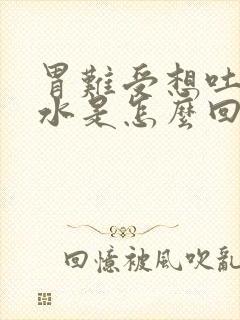 胃難受想吐
水是怎麼回
回憶被風吹亂